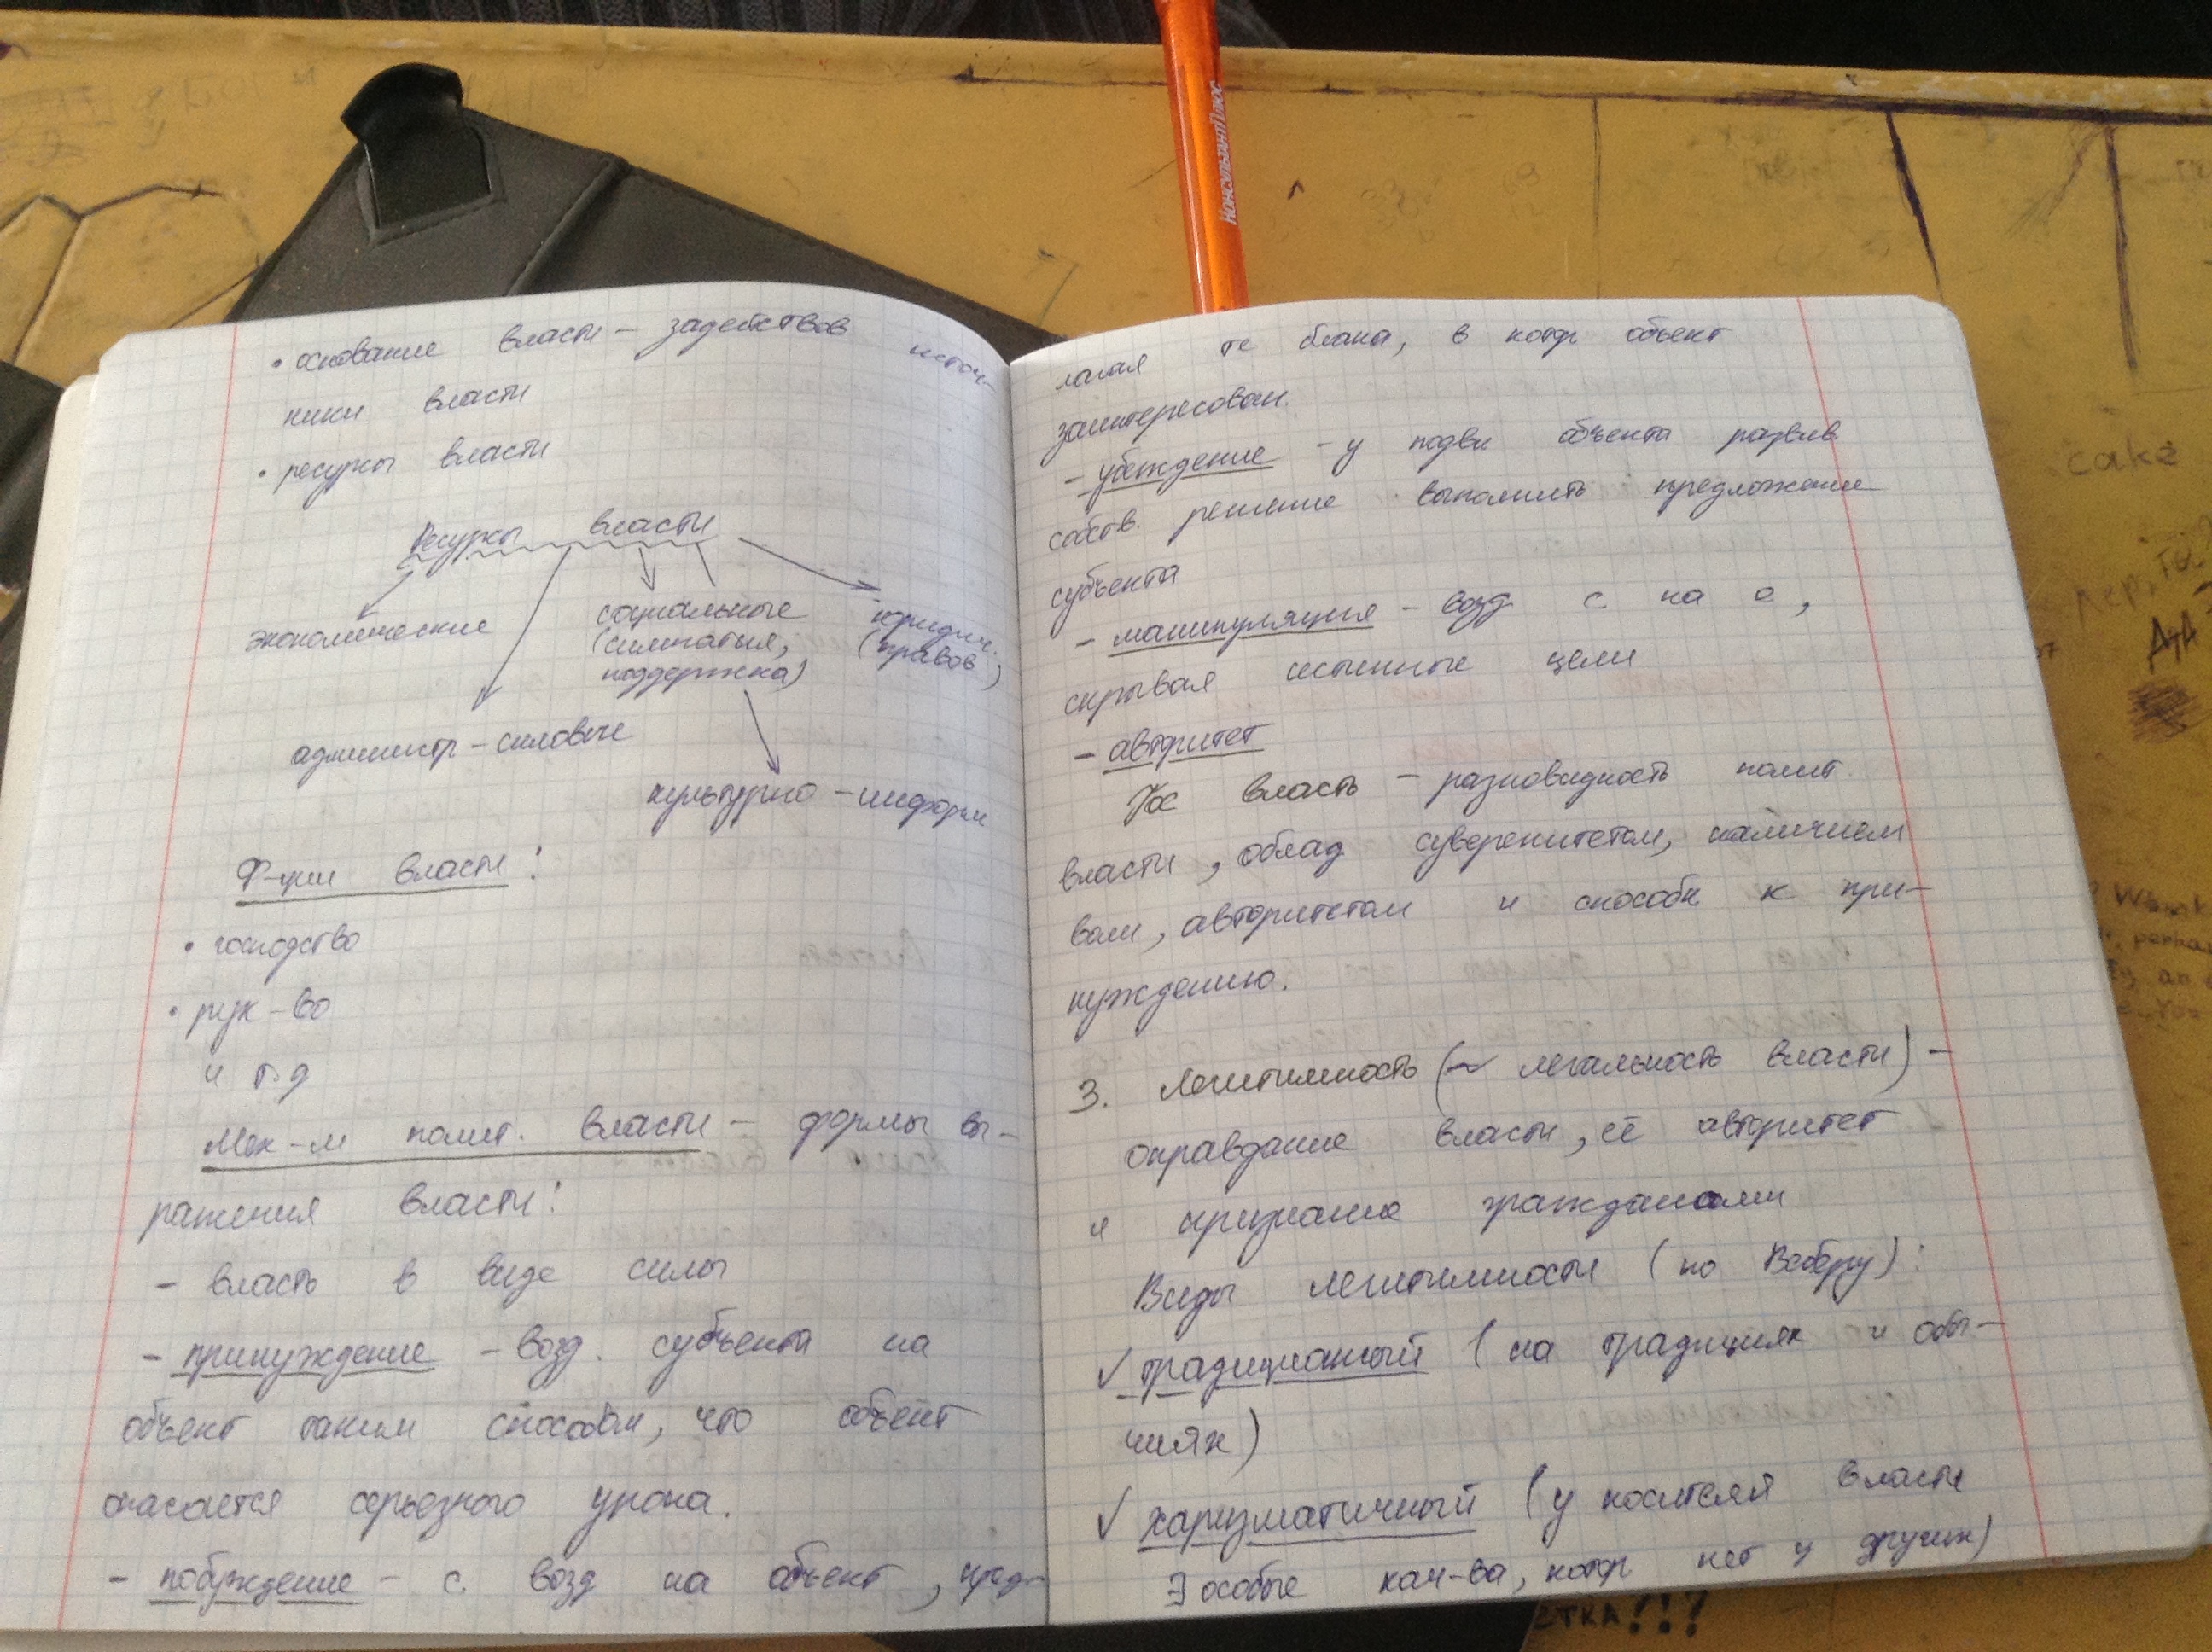 КонсультантПлюс
• основание власти – задействов источ-
ники власти
• ресурсы власти
Ресурсы власти
экономические
социальные
(симпатия,
поддержка)
юридич.
(правов)
администр – силовые
культурно – информ
Ф-ции власти:
• господство
• рук-во
и т.д
Мех-м полит. власти – формы вы-
ражения власти:
– власть в виде силы
– принуждение – возд. субъекта на
объект таким способом, что объект
опасается серьезного урона.
– побуждение – с. возд на объект, пред-
лагая те блага, в котор объект
заинтересован.
– убеждение – у подвл объекта развив
собств. решение выполнить предложение
субъекта
– манипуляция – возд с. на о,
скрывая истинные цели
– авторитет
Гос власть – разновидность полит.
власти, облад суверенитетом, наличием
воли, авторитетом и способн к при-
нуждению.
3. Легитимность (~ легальность власти) –
оправдание власти, её авторитет
и признание гражданами
Виды легитимности (по Веберу):
✓ традиционный (на традициях и обы-
чиях)
✓ харизматичный (у носителей власти
∃ особые кач-ва, котор нет у других)
cake
ДА
perha
an
You
ЕТКА!!!